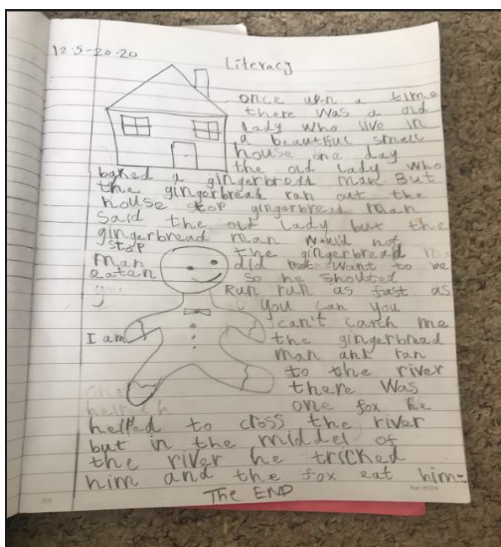 12-5-20-20
Literacy
once upon a time
there was a old
lady who live in
a beautiful small
house one day
the old lady who
baked a gingerbread man But
the gingerbread ran out the
house stop gingerbread man
said the old lady but the
gingerbread man would not
stop the gingerbread
man did not want to be
eaten so he shouted
Run run as fast as
you can you
can't carth me
I am the gingerbread
man and ran
to the river
there was
one fox he
helped to cross the river
but in the middel of
the river he tricked
him and the fox eat him
The END